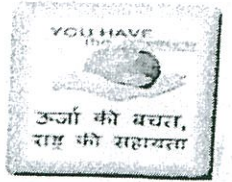 YOU HAVE
the
ऊर्जा की बचत,
राष्ट्र की सहायता